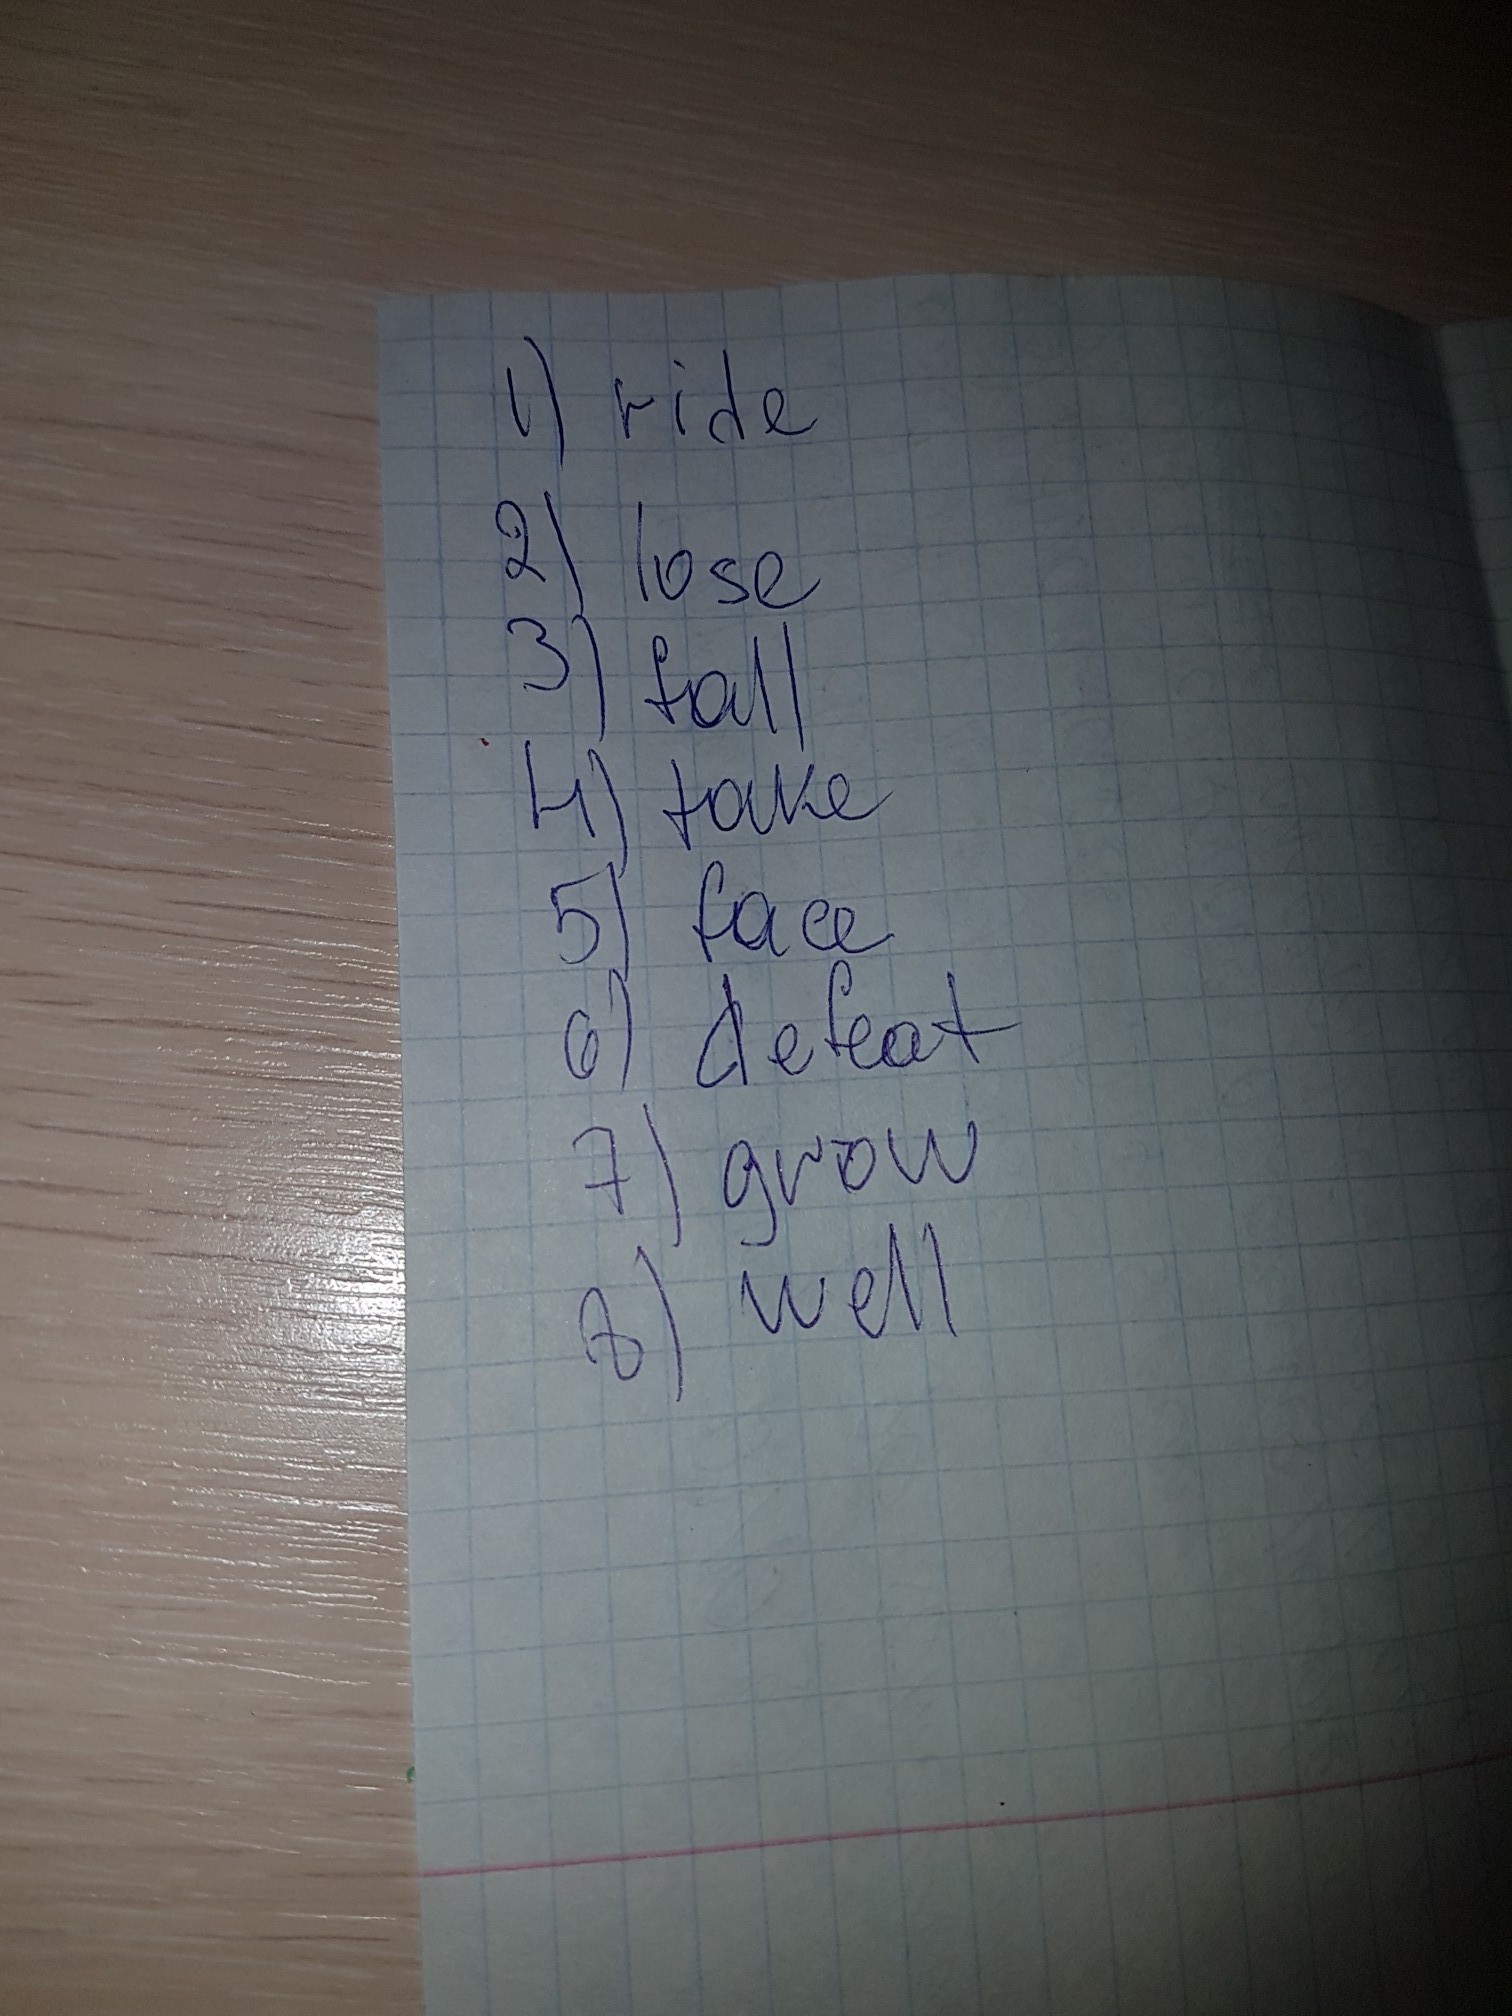 1) ride
2) lose
3) fall
4) take
5) face
6) defeat
7) grow
8) well